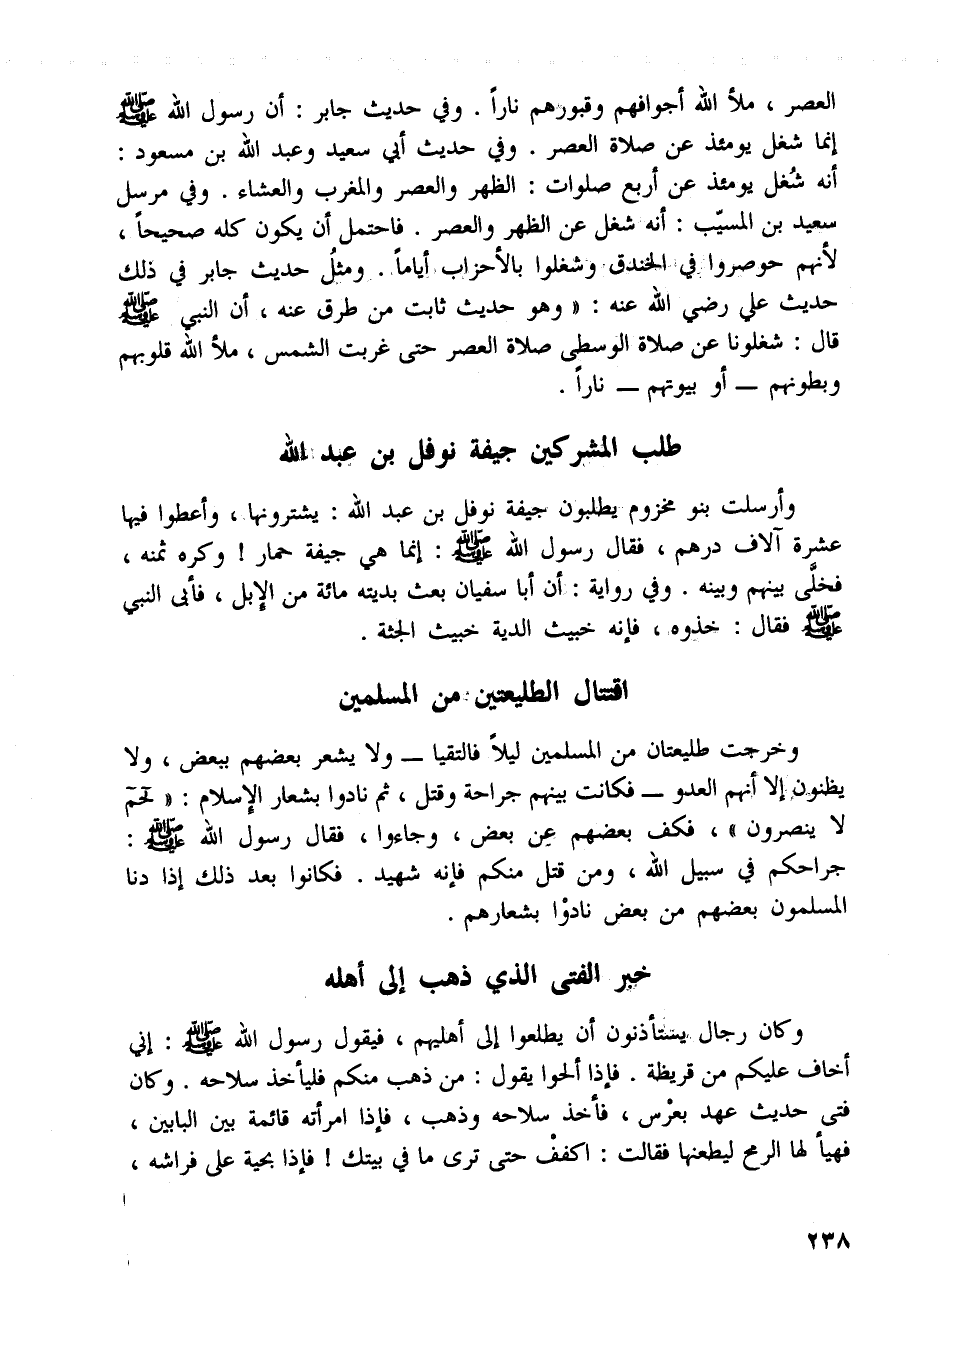 العصر ، ملأ الله أجوافهم وقبورهم ناراً . وفي حديث جابر : أن رسول الله ﷺ
إنما شغل يومئذ عن صلاة العصر . وفي حديث أبي سعيد وعبد الله بن مسعود :
أنه شُغل يومئذ عن أربع صلوات : الظهر والعصر والمغرب والعشاء . وفي مرسل
سعيد بن المسيّب : أنه شغل عن الظهر والعصر . فاحتمل أن يكون كله صحيحاً ،
لأنهم حوصروا في الخندق وشغلوا بالأحزاب أياماً . ومثلُ حديث جابر في ذلك
حديث علي رضي الله عنه : « وهو حديث ثابت من طرق عنه ، أن النبي ﷺ
قال : شغلونا عن صلاة الوسطى صلاة العصر حتى غربت الشمس ، ملأ الله قلوبهم
وبطونهم — أو بيوتهم — ناراً .
طلب المشركين جيفة نوفل بن عبد الله
وأرسلت بنو مخزوم يطلبون جيفة نوفل بن عبد الله : يشترونها ، وأعطوا فيها
عشرة آلاف درهم ، فقال رسول الله ﷺ : إنما هي جيفة حمار ! وكره ثمنه ،
فخلَّى بينهم وبينه . وفي رواية : أن أبا سفيان بعث بديته مائة من الإبل ، فأبى النبي
ﷺ فقال : خذوه ، فإنه خبيث الدية خبيث الجثة .
اقتتال الطليعتين من المسلمين
وخرجت طليعتان من المسلمين ليلاً فالتقيا — ولا يشعر بعضهم ببعض ، ولا
يظنون إلا أنهم العدو — فكانت بينهم جراحة وقتل ، ثم نادوا بشعار الإسلام : «
لا ينصرون » ، فكف بعضهم عن بعض ، وجاءوا ، فقال رسول الله ﷺ :
جراحكم في سبيل الله ، ومن قتل منكم فإنه شهيد . فكانوا بعد ذلك إذا دنا
المسلمون بعضهم من بعض نادوْا بشعارهم .
خبر الفتى الذي ذهب إلى أهله
وكان رجال يستأذنون أن يطلعوا إلى أهليهم ، فيقول رسول الله ﷺ : إني
أخاف عليكم من قريظة . فإذا ألحوا يقول : من ذهب منكم فليأخذ سلاحه . وكان
فتى حديث عهد بعرْس ، فأخذ سلاحه وذهب ، فإذا امرأته قائمة بين البابين ،
فهيأ لها الرمح ليطعنها فقالت : اكففْ حتى ترى ما في بيتك ! فإذا بحية على فراشه ،
٢٣٨